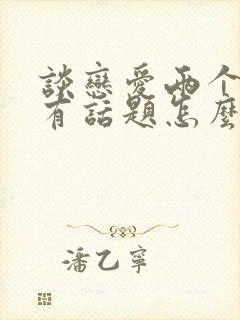 談戀愛兩个
有話題怎麼
潘乙寧